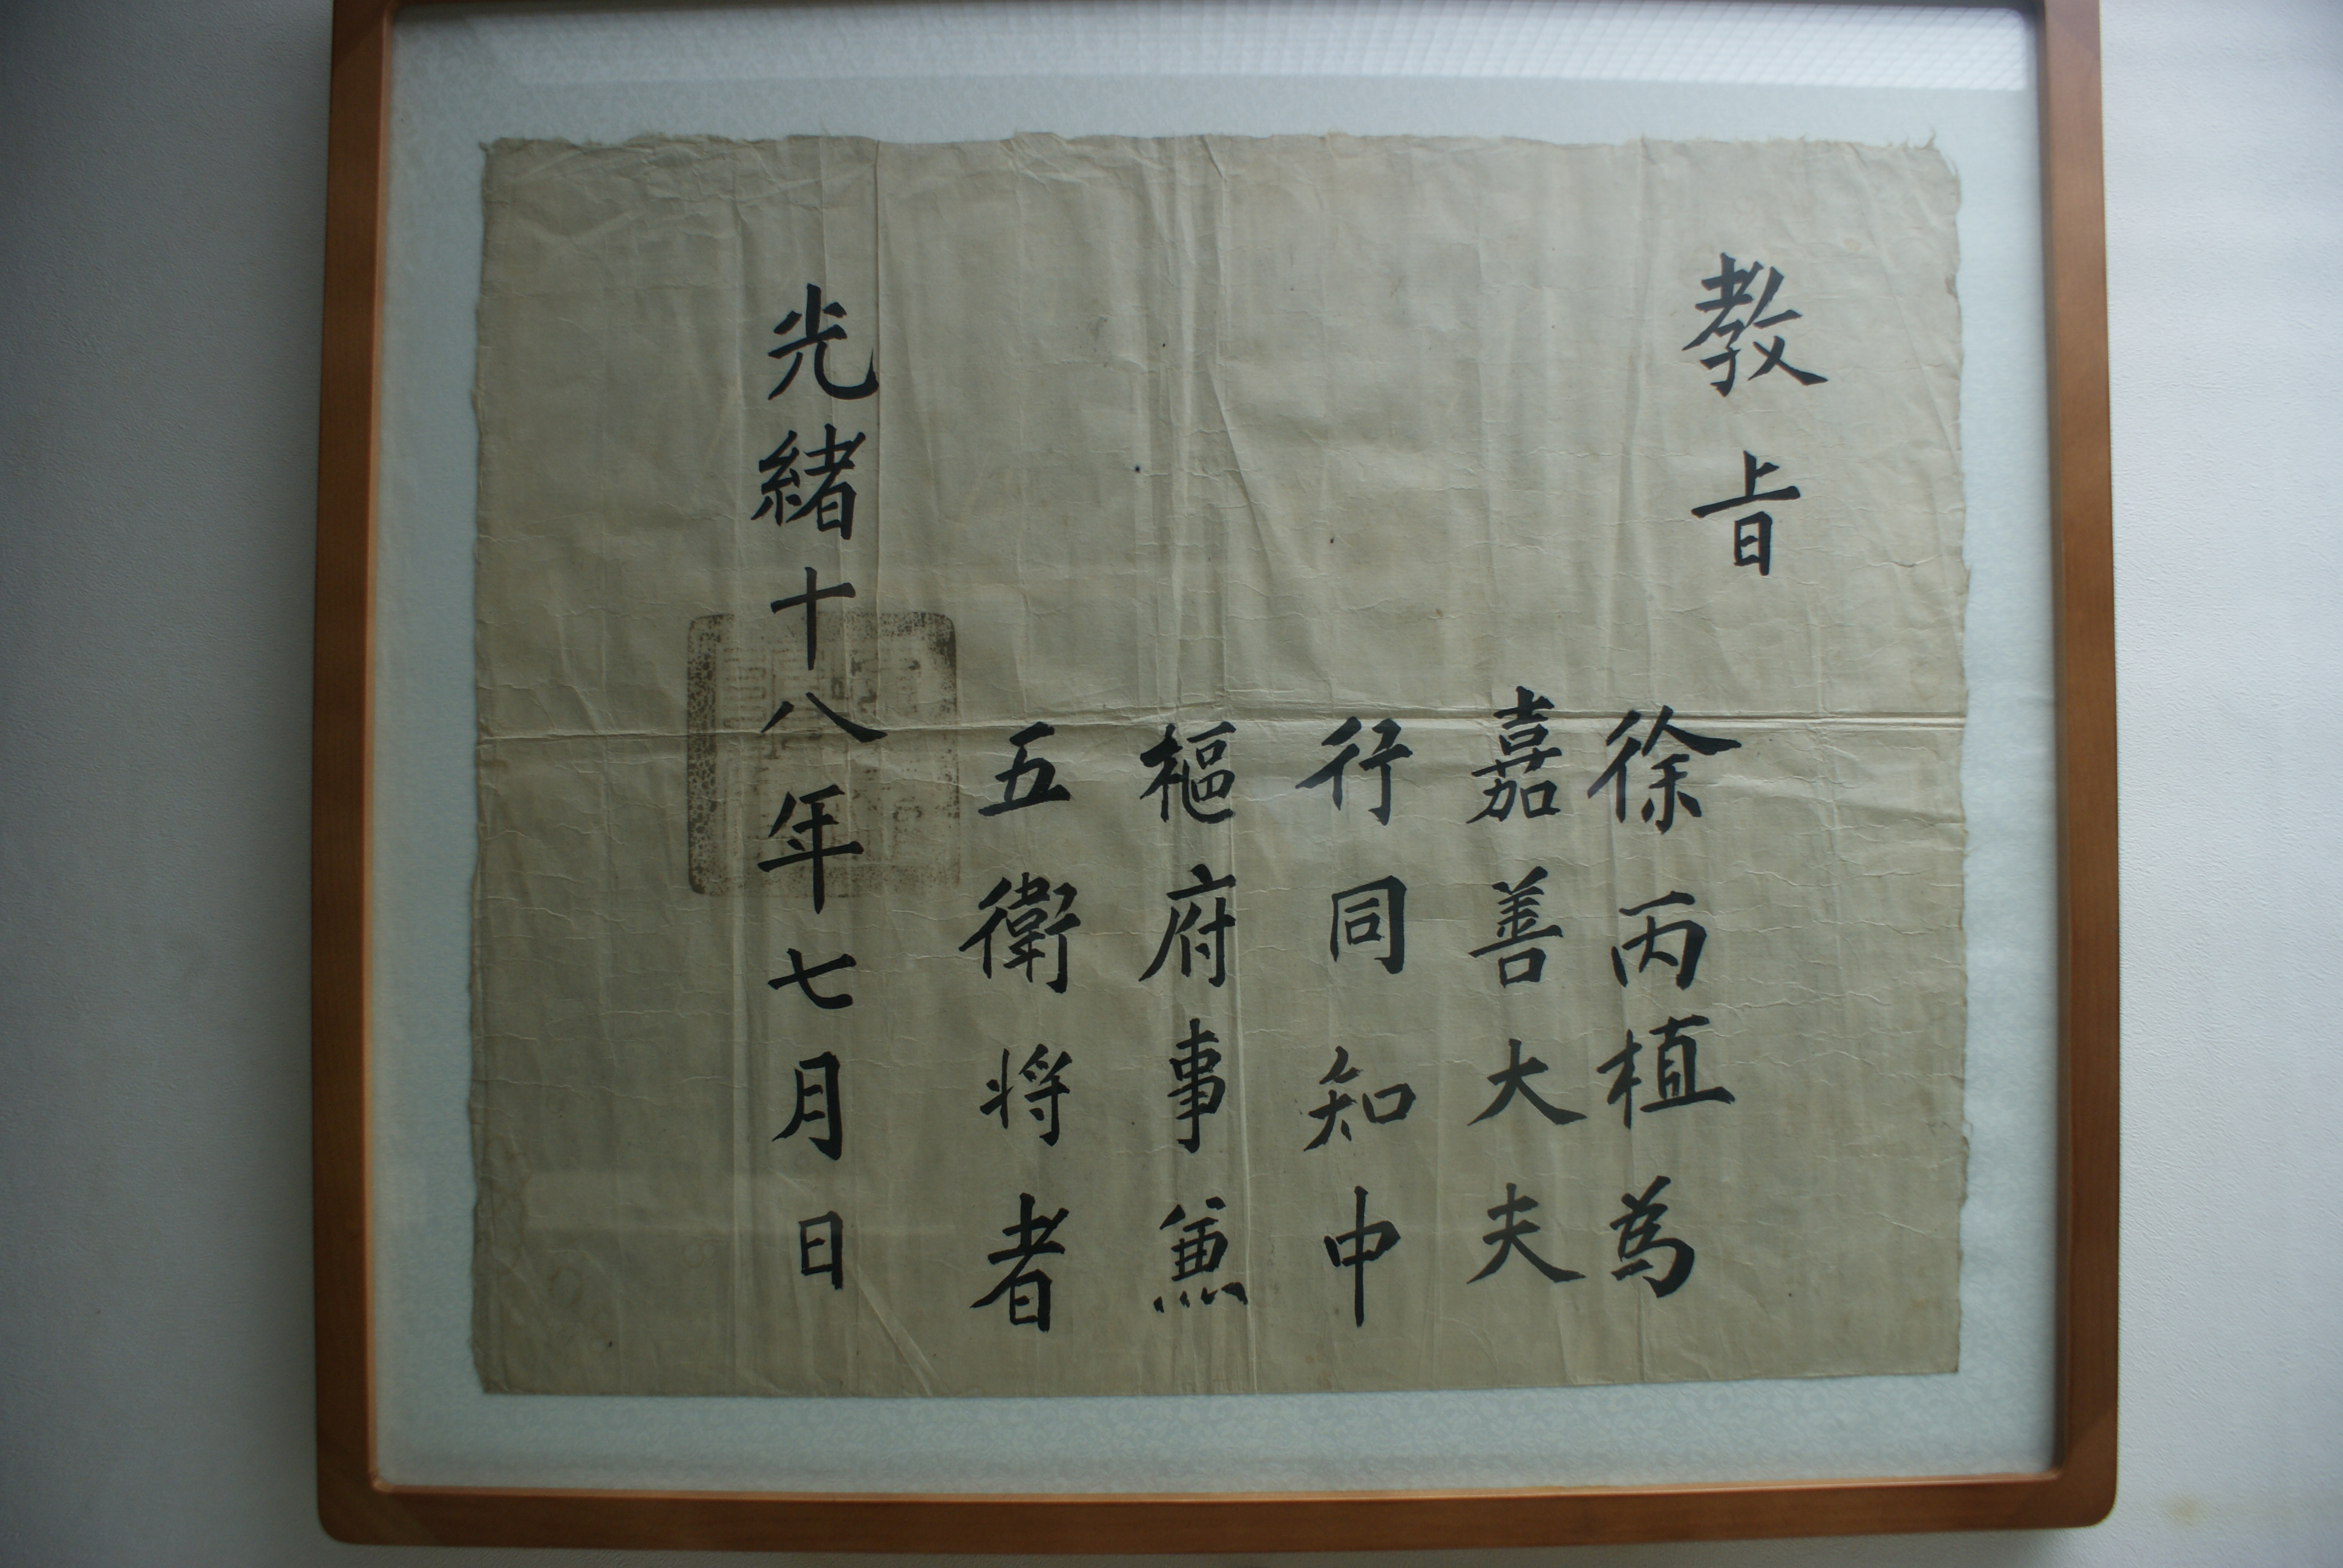 教旨
徐丙植為
嘉善大夫
行同知中
樞府事兼
五衛将者
光緖十八年七月日